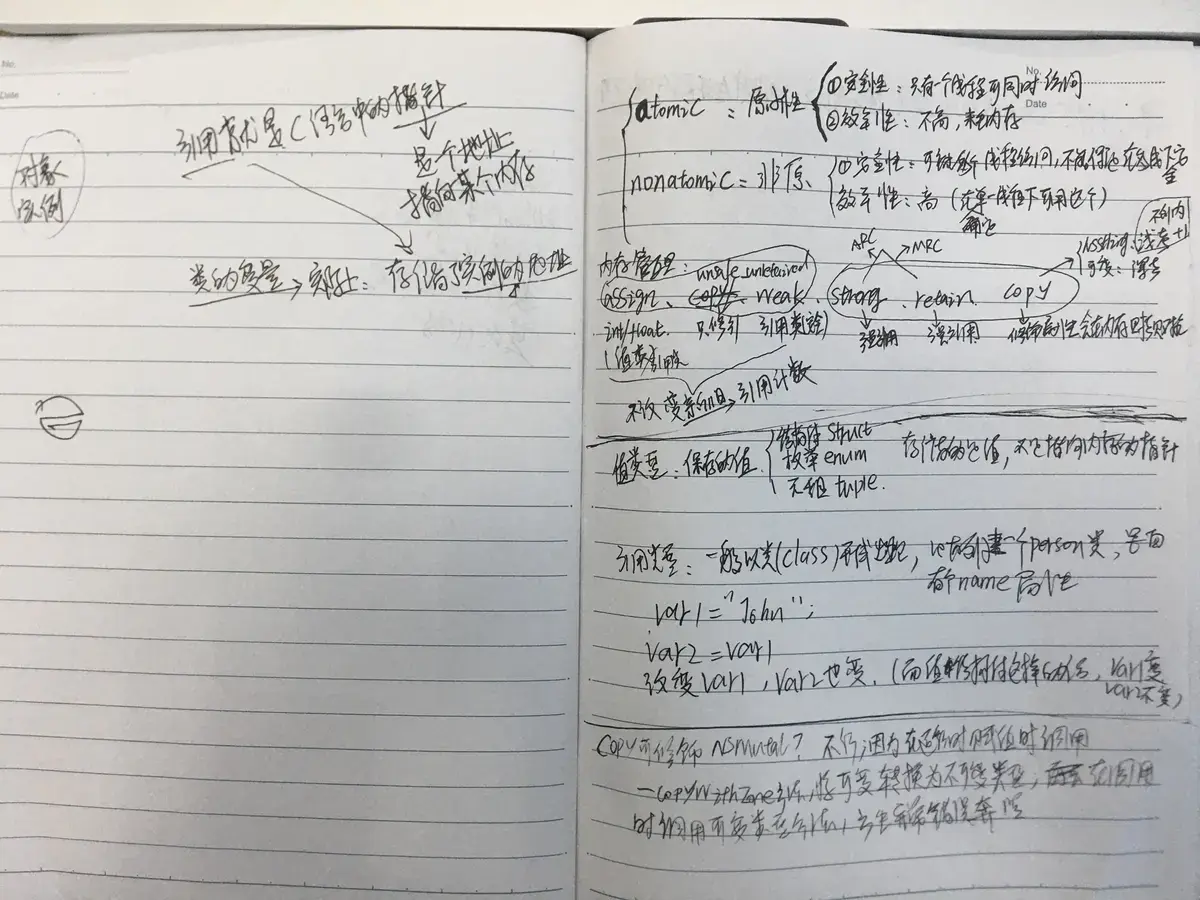 No.
Date
引用类型就是C语言中的指针
是个地址
指向某个内存
对象
实例
类的变量→实际上：存储着了实例的地址
No.
Date
atomic：原子性
①安全性：只有一个线程可同时访问
②效率性：不高，耗内存
nonatomic：非原
①安全性：可被多个线程访问，不能保证在多线下安全
效率性：高（在单一线程下可用这个）
ARC
MRC
内存管理：unsafe_unretained
assign、weak、strong、retain、copy
int/float 只修引 引用类型)
强引用
强引用
不改变 引用计数
值类型：保存的值
结构体 struct
枚举 enum
元组 tuple.
存储的是值，不是指向内存的指针
引用类型：一般以类(class)形式出现，比如创建一个person类，里面
有个name属性
var1="John";
var2=var1
改变var1，var2也变.
var1变
var2不变)
copy可修饰NSMutal？不行，因为在 时赋值时调用
-copyWithZone方法，将可变转换为不可变类型，在调用
时调用可变类型方法，